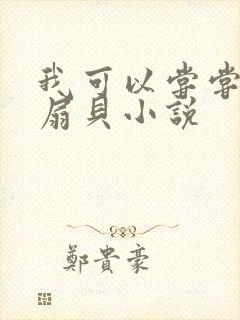 我可以嘗嘗
扇貝小說
鄭貴豪